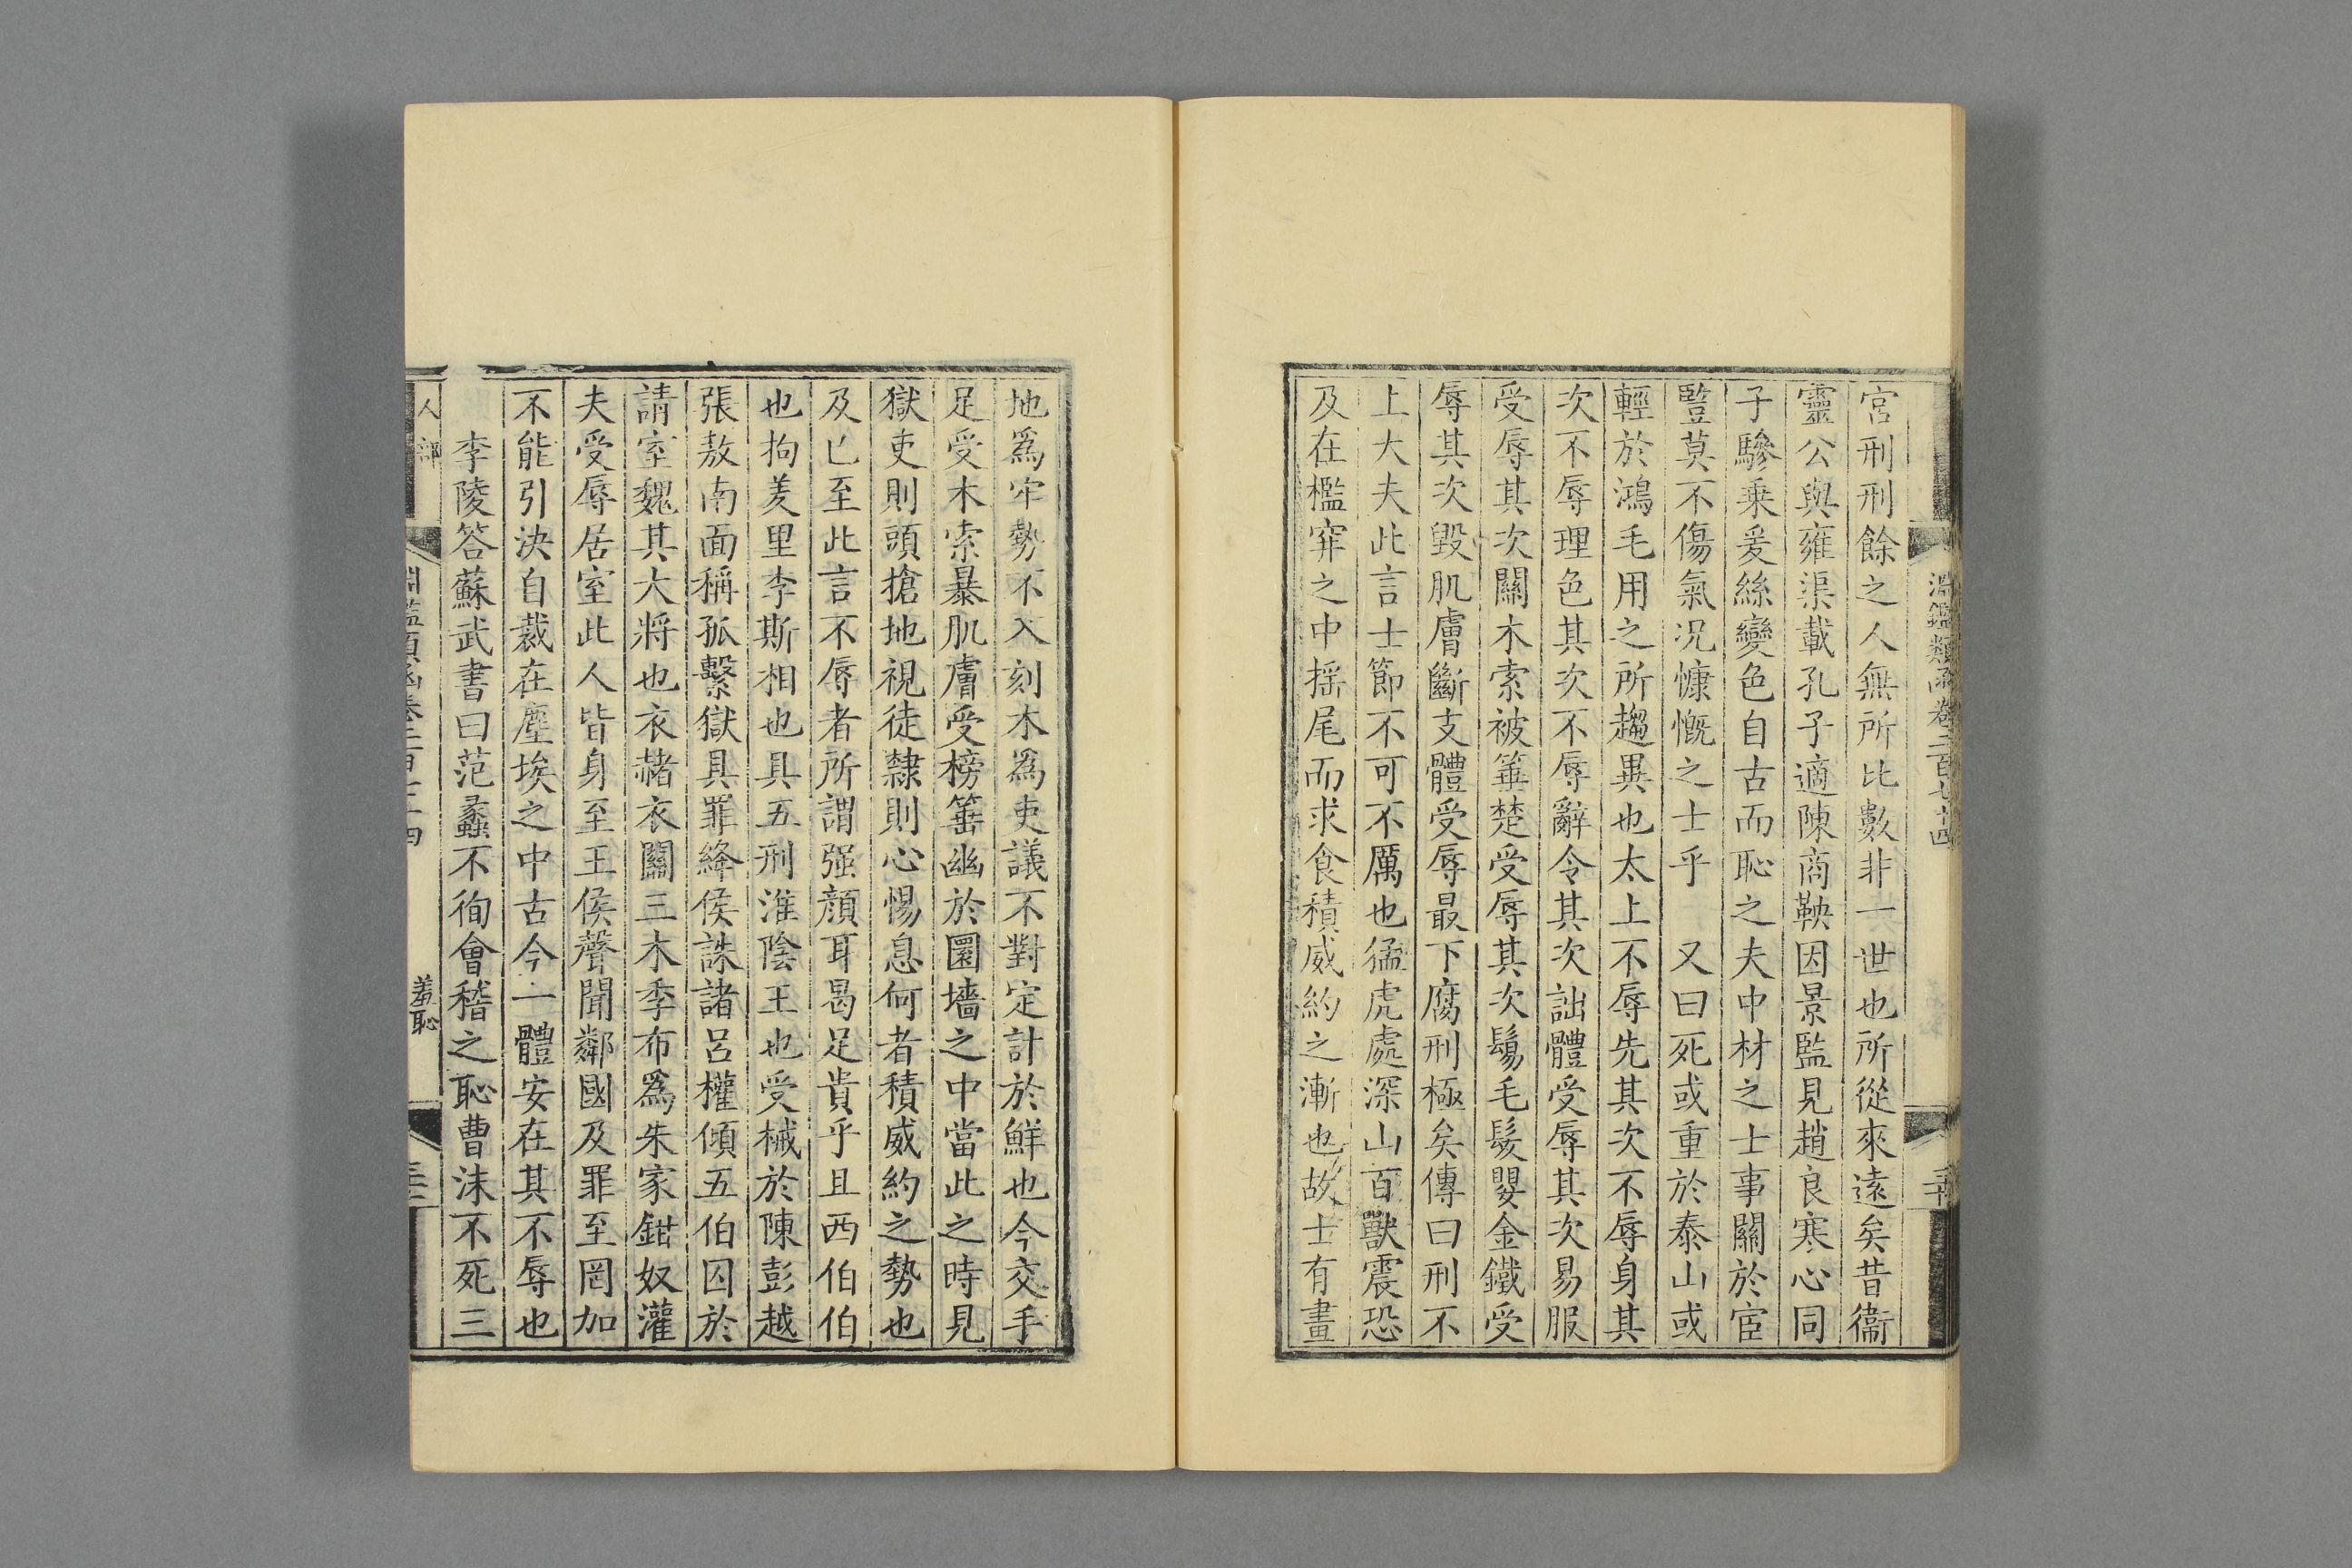 淵鑑類函卷二百七十四
宮刑刑餘之人無所比數非一世也所從來遠矣昔衞
靈公與雍渠載孔子適陳商鞅因景監見趙良寒心同
子驂乘爰絲變色自古而恥之夫中材之士事關於宦
豎莫不傷氣况慷慨之士乎 又曰死或重於泰山或
輕於鴻毛用之所趨異也太上不辱先其次不辱身其
次不辱理色其次不辱辭令其次詘體受辱其次易服
受辱其次關木索被箠楚受辱其次鬄毛髮嬰金鐵受
辱其次毀肌膚斷支體受辱最下腐刑極矣傳曰刑不
上大夫此言士節不可不厲也猛虎處深山百獸震恐
及在檻穽之中揺尾而求食積威約之漸也故士有畫
地爲牢勢不入刻木爲吏議不對定計於鮮也今交手
足受木索暴肌膚受榜箠幽於圜墻之中當此之時見
獄吏則頭搶地視徒隸則心惕息何者積威約之勢也
及已至此言不辱者所謂强顔耳曷足貴乎且西伯伯
也拘羑里李斯相也具五刑淮陰王也受械於陳彭越
張敖南面稱孤繫獄具罪絳侯誅諸呂權傾五伯囚於
請室魏其大將也衣赭衣關三木季布爲朱家鉗奴灌
夫受辱居室此人皆身至王侯聲聞鄰國及罪至罔加
不能引決自裁在塵埃之中古今一體安在其不辱也
李陵答蘇武書曰范蠡不徇會稽之恥曹沫不死三
人部 淵鑑類函卷二百七十四 羞恥